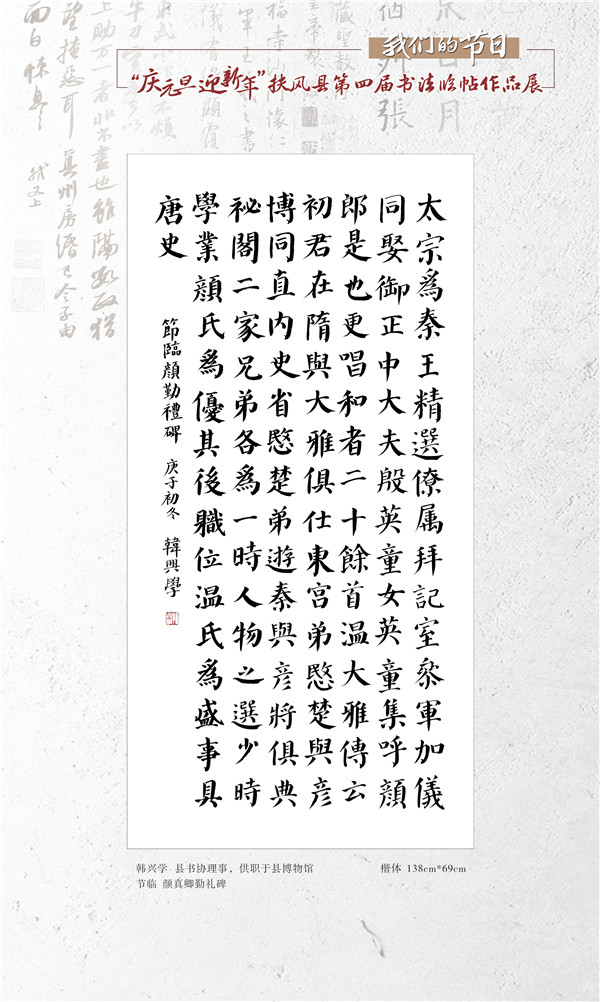 我们的节日
“庆元旦迎新年”扶风县第四届书法临帖作品展
太宗爲秦王精選僚属拜記室叅軍加儀
同娶御正中大夫殷英童女英童集呼顔
郎是也更唱和者二十餘首温大雅傳云
初君在隋與大雅俱仕東宫弟愍楚與彦
博同直内史省愍楚弟遊秦與彦將俱典
祕閣二家兄弟各爲一時人物之選少時
學業顔氏爲優其後職位温氏爲盛事具
唐史
節臨顔勤禮碑 庚子初冬 韓興學
韩兴学 县书协理事，供职于县博物馆
楷体 138cm*69cm
节临 颜真卿勤礼碑